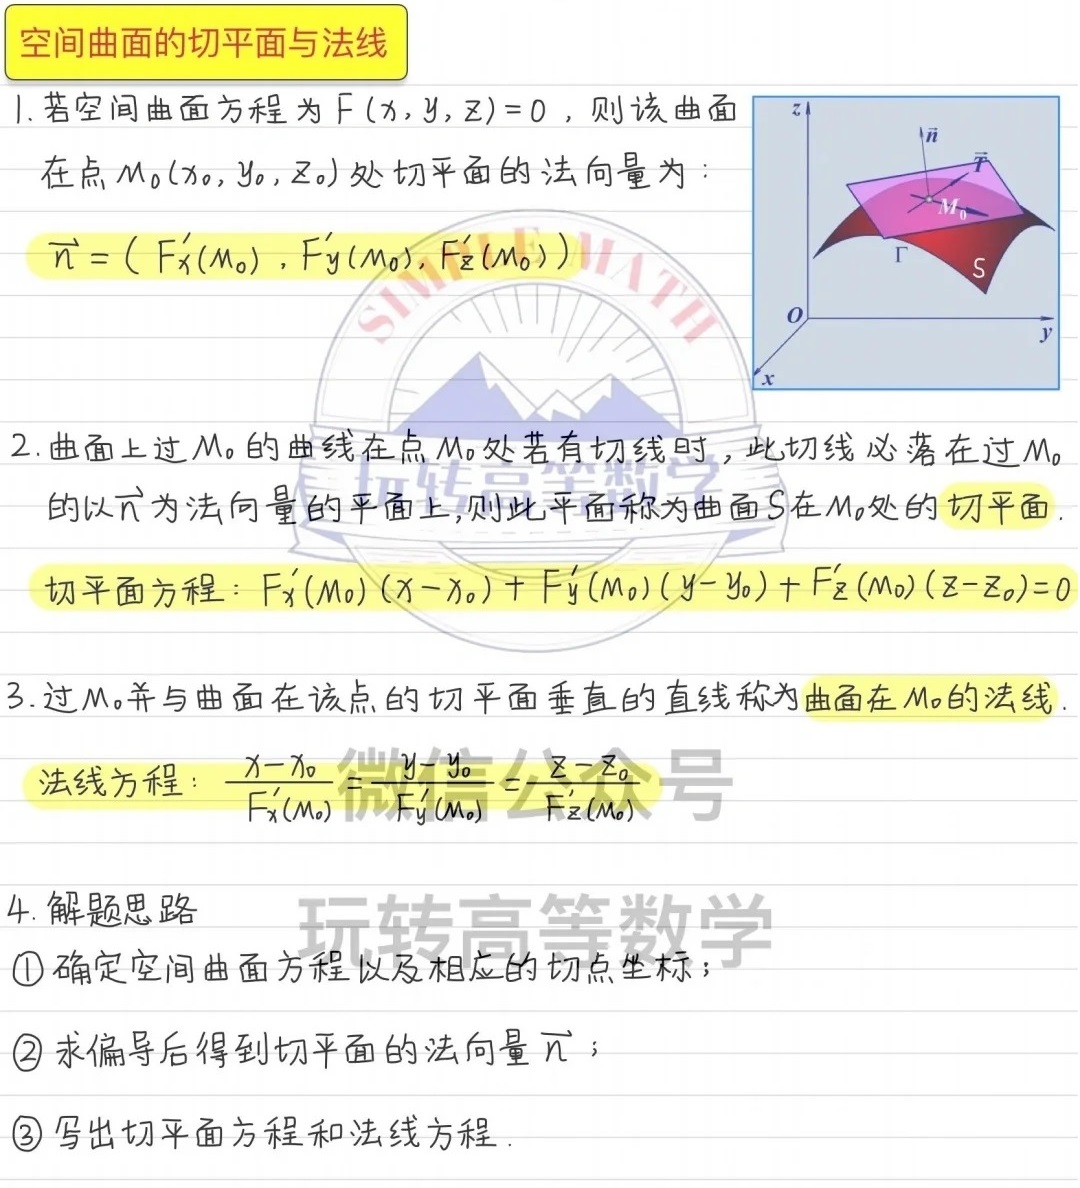 空间曲面的切平面与法线
1. 若空间曲面方程为 F(x, y, z) = 0 , 则该曲面
在点 M₀(x₀, y₀, z₀) 处切平面的法向量为 :
n⃗ = ( Fx′(M₀) , Fy′(M₀), Fz′(M₀) )
z
n⃗
T⃗
M₀
Γ
S
O
y
x
SIMPLE MATH
2. 曲面上过 M₀ 的曲线在点 M₀ 处若有切线时, 此切线必落在过 M₀
玩转高等数学
的以 n⃗ 为法向量的平面上,则此平面称为曲面S在M₀处的切平面.
切平面方程: Fx′(M₀)(x-x₀) + Fy′(M₀)(y-y₀) + Fz′(M₀)(z-z₀)=0
3. 过M₀并与曲面在该点的切平面垂直的直线称为曲面在M₀的法线.
法线方程: (x-x₀)/Fx′(M₀) = (y-y₀)/Fy′(M₀) = (z-z₀)/Fz′(M₀)
微信公众号
4. 解题思路
玩转高等数学
① 确定空间曲面方程以及相应的切点坐标;
② 求偏导后得到切平面的法向量 n⃗ ;
③ 写出切平面方程和法线方程.